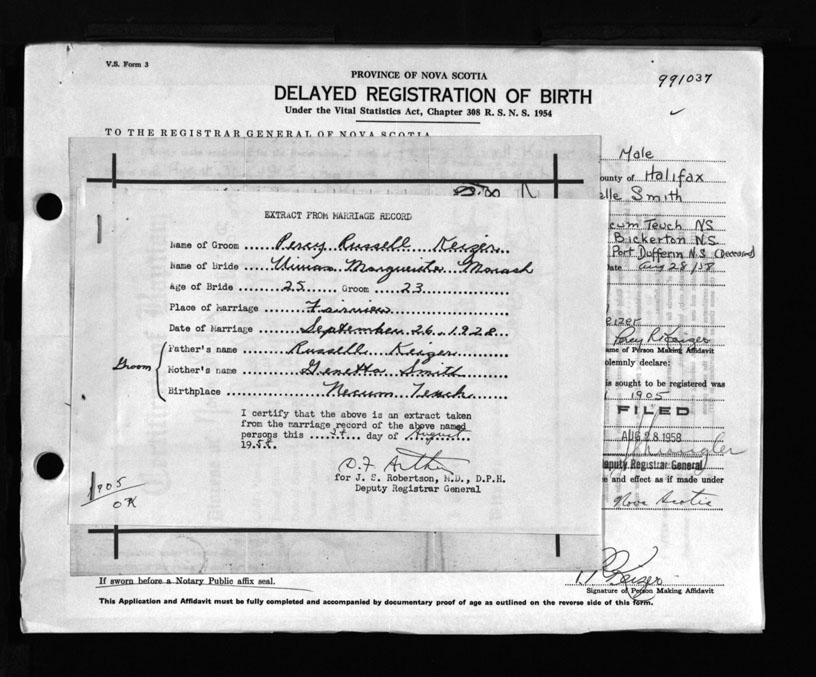 V.S. Form 3
PROVINCE OF NOVA SCOTIA
991037
DELAYED REGISTRATION OF BIRTH
Under the Vital Statistics Act, Chapter 308 R. S. N. S. 1954
TO THE REGISTRAR GENERAL OF NOVA SCOTIA
Male
ounty of Halifax
elle Smith
cum Teuch NS
Bickerton N.S.
Port Dufferin N.S (Deceased)
ate Aug 28/58
EXTRACT FROM MARRIAGE RECORD
Name of Groom ..... Percy Russell Keizer
Name of Bride ..... Marguerita Monash
Age of Bride ..... 25 ..... Groom .... 23
Place of Marriage ..... Fairview
Date of Marriage ..... September 26, 1928
Groom { Father's name ..... Russell Keizer
Mother's name ..... Genetta Smith
Birthplace ..... Necum Teuch
I certify that the above is an extract taken
from the marriage record of the above named
persons this .... day of August
195
D.F. Arthur
for J. S. Robertson, M.D., D.P.H.
Deputy Registrar General
1905
OK
eizer
Percy R Keizer
me of Person Making Affidavit
olemnly declare:
is sought to be registered was
1905
FILED
AUG 28 1958
Deputy Registrar General
e and effect as if made under
Nova Scotia
If sworn before a Notary Public affix seal.
Keizer
Signature of Person Making Affidavit
This Application and Affidavit must be fully completed and accompanied by documentary proof of age as outlined on the reverse side of this form.